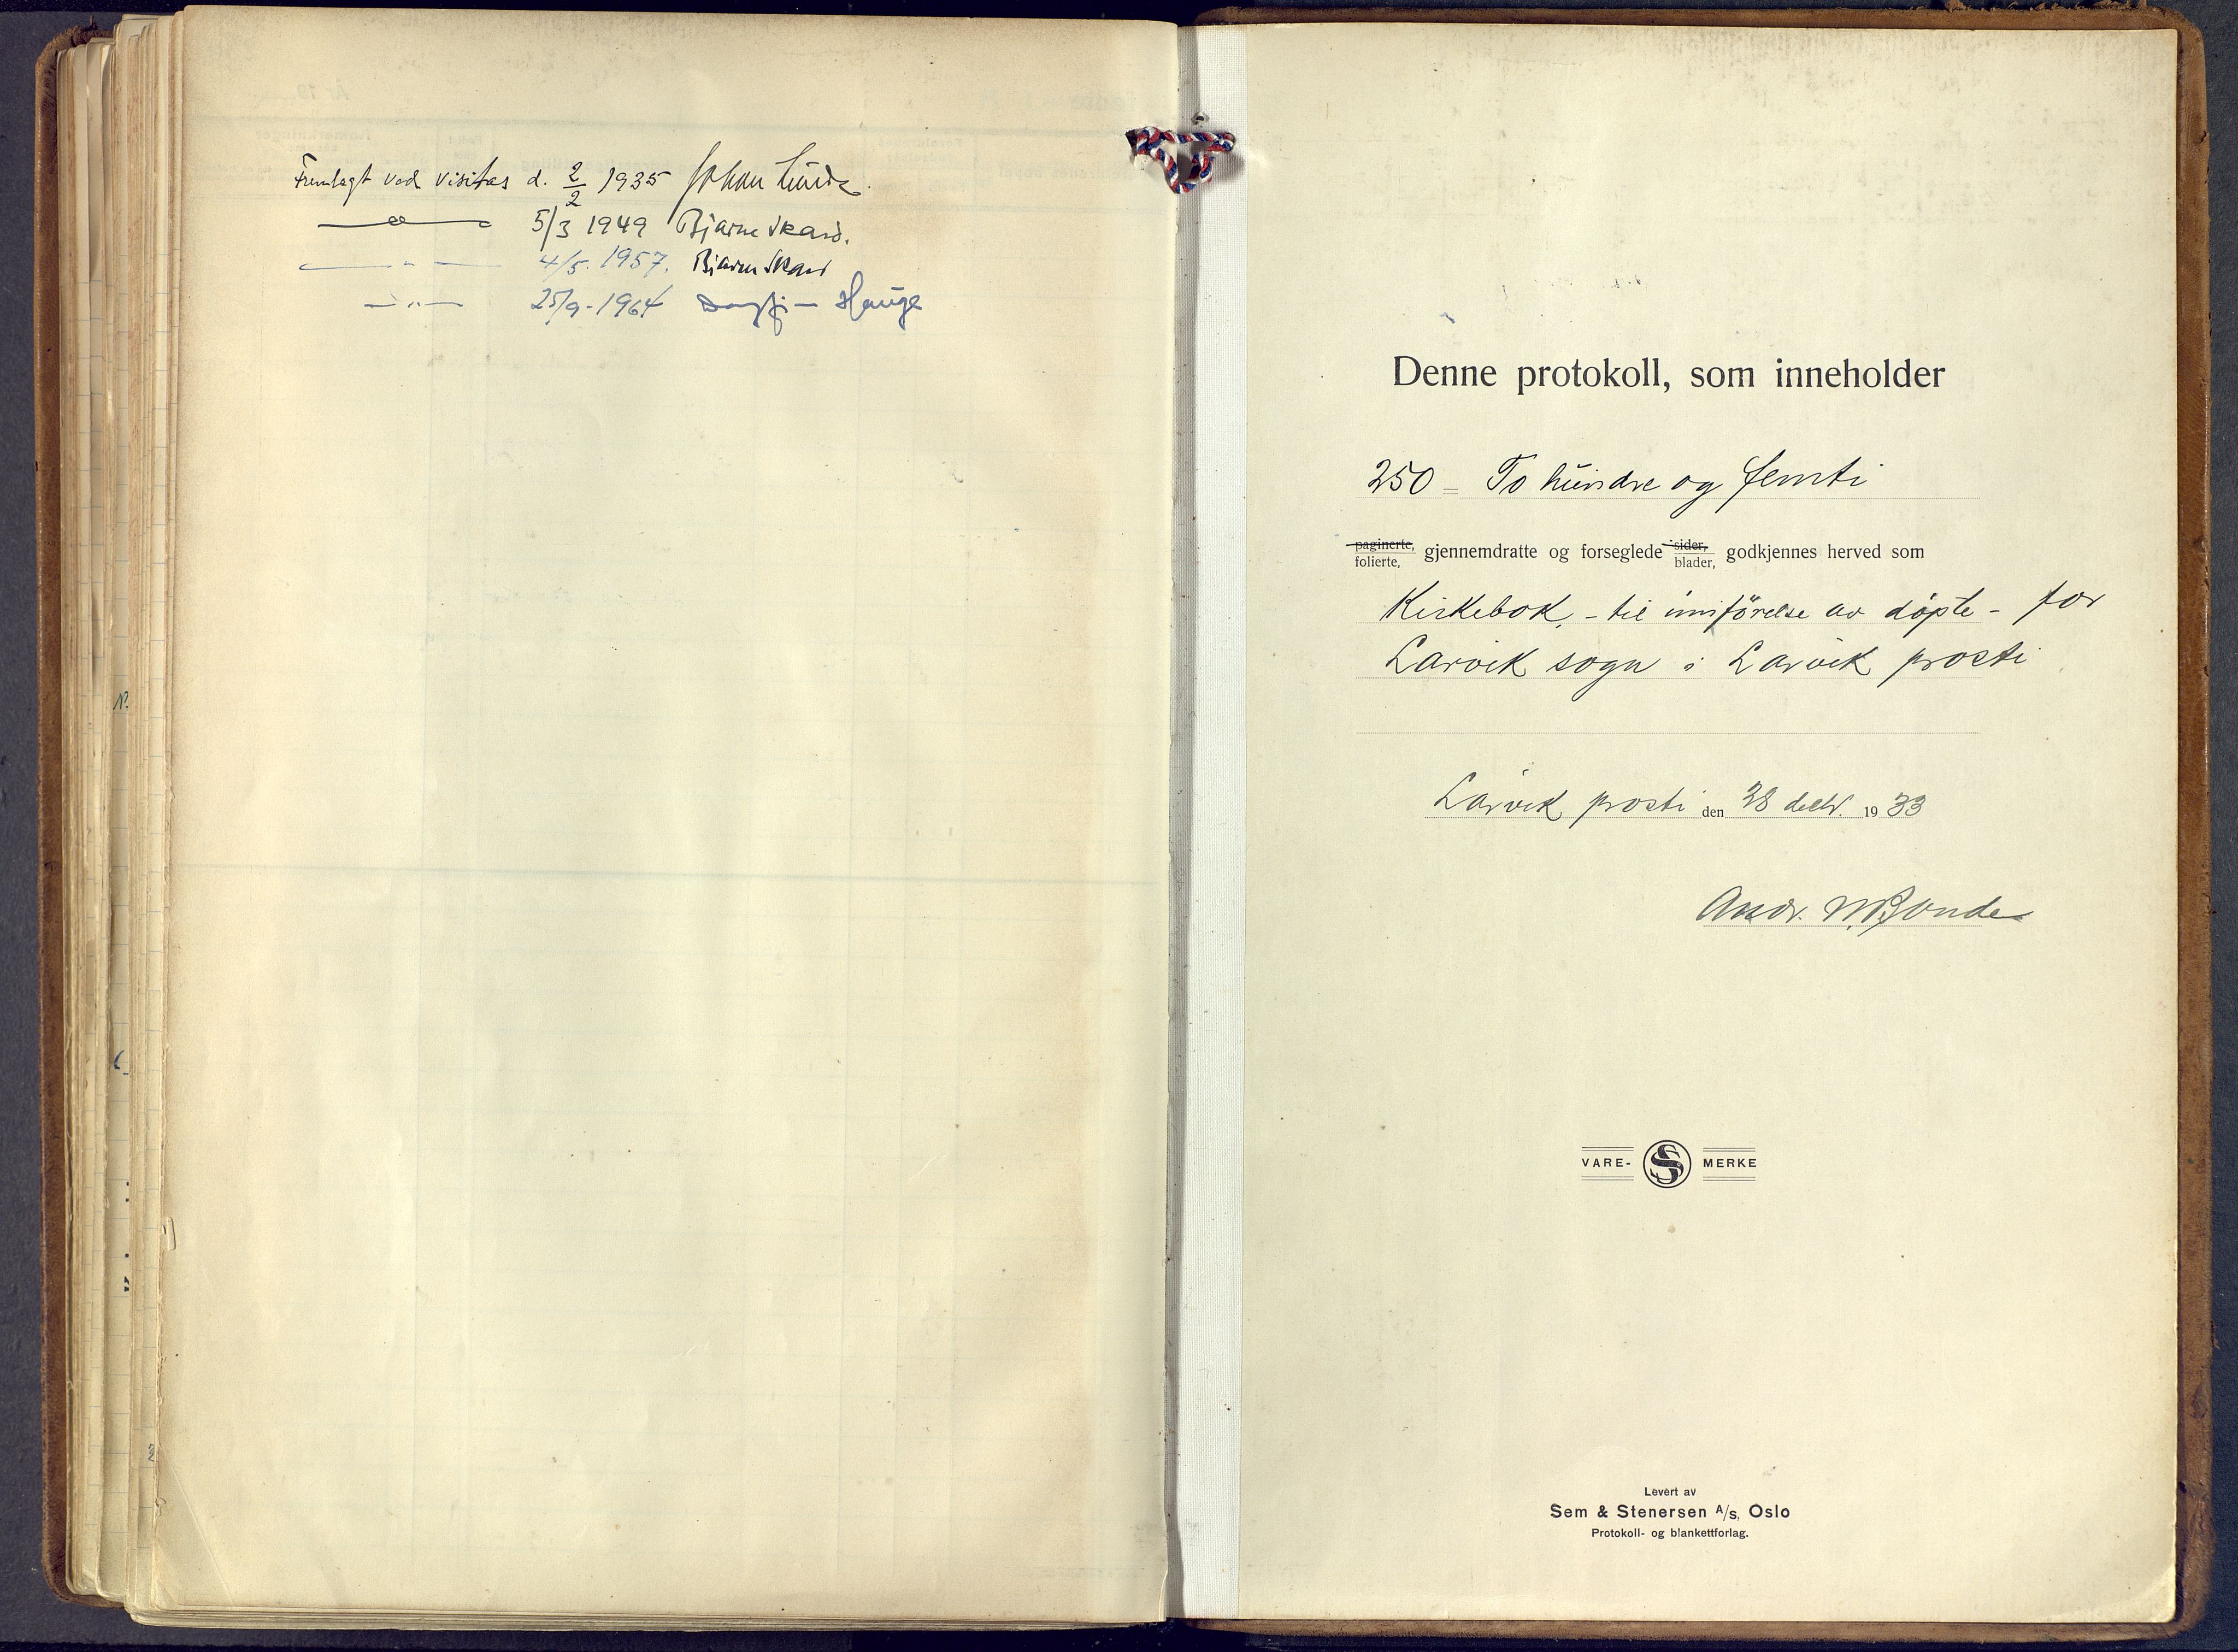 Fremlagt ved visitas d. 2/2 1935 Johan Lunde.
—〃— 5/3 1949 Bjarne Skard.
—〃— 4/5. 1957. Bjarne Skard
—〃— 25/9-1964 Dagfinn Hauge
Denne protokoll, som inneholder
250 = To hundre og femti
paginerte, folierte, gjennemdratte og forseglede sider, blader, godkjennes herved som
Kirkebok, - til innførelse av døpte - for
Larvik sogn i Larvik prosti
Larvik prosti den 28 decbr. 1933
Andr. N. Bonde
VARE- SS MERKE
Levert av
Sem & Stenersen A/s, Oslo
Protokoll- og blankettforlag.